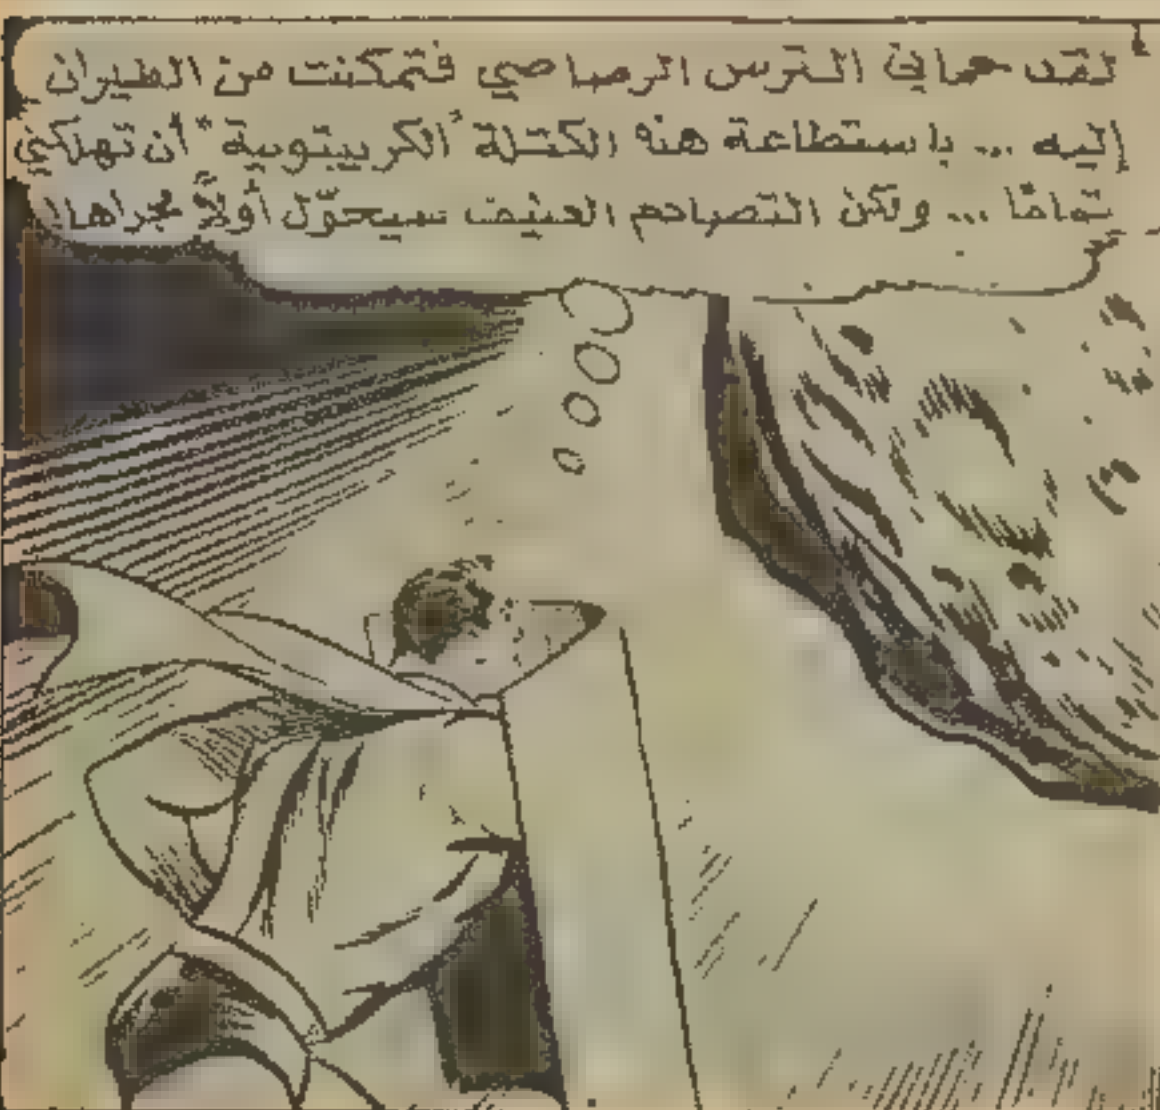 لقد حماني الترس الرصاصي فتمكنت من الطيران
إليه ... باستطاعة هذه الكتلة "الكريبتونية" أن تهلكني
تمامًا ... ولكن التصادم العنيف سيحوّل أولاً مجراها!